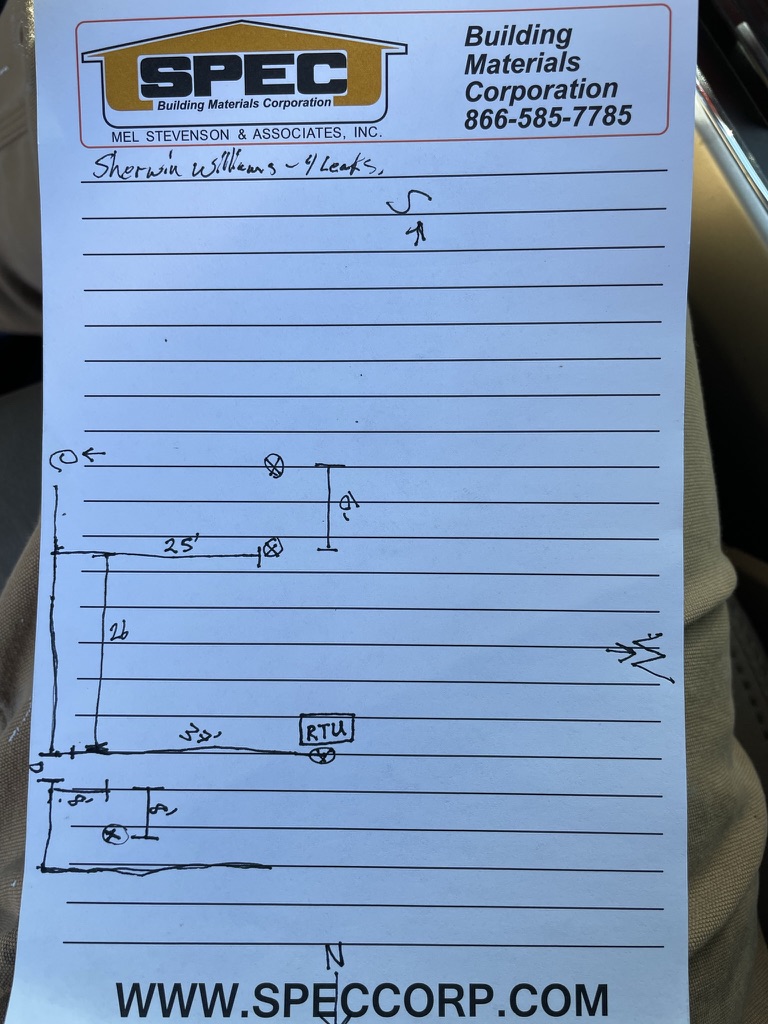 SPEC
Building Materials Corporation
MEL STEVENSON & ASSOCIATES, INC.
Building
Materials
Corporation
866-585-7785
Sherwin Williams - 4 Leaks.
S
25'
26
W
RTU
8'
8'
N
WWW.SPECCORP.COM